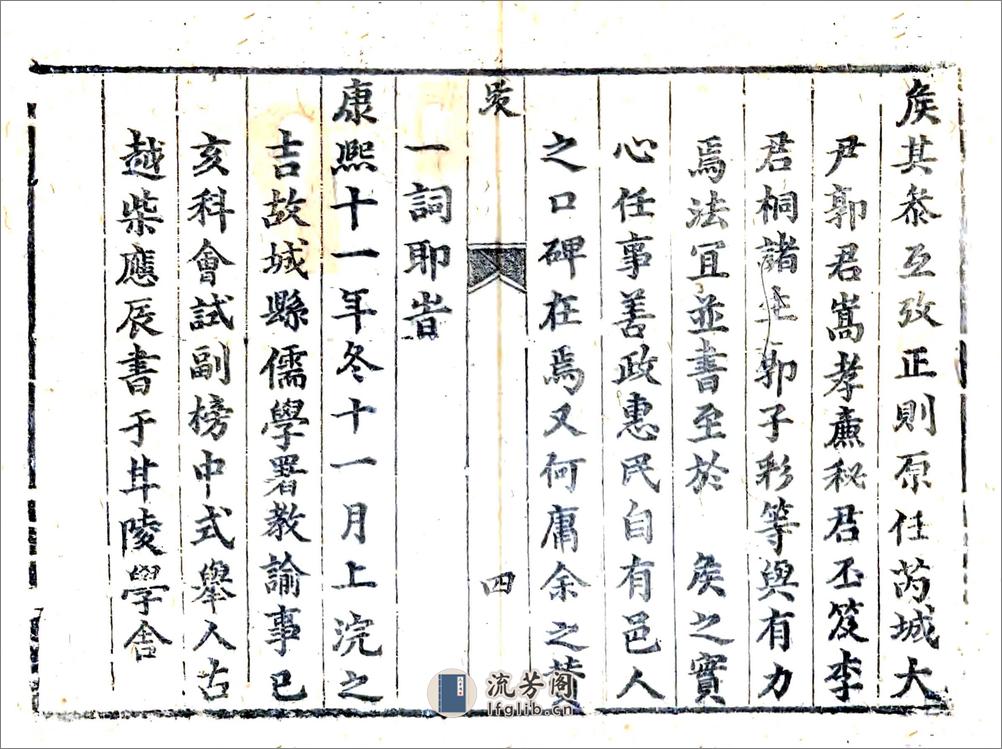 矦其叅互攷正則原任芮城大
尹郭君嵩孝亷秘君丕笈李
君桐諸生郭子彩等與有力
焉法宜並書至於 矦之實
心任事善政惠民自有邑人
之口碑在焉又何庸余之贅
四
一詞耶峕
康熙十一年冬十一月上浣之
吉故城縣儒學署教諭事巳
亥科會試副榜中式舉人古
越柴應辰書于甘陵學舍
流芳阁
lfglib.cn